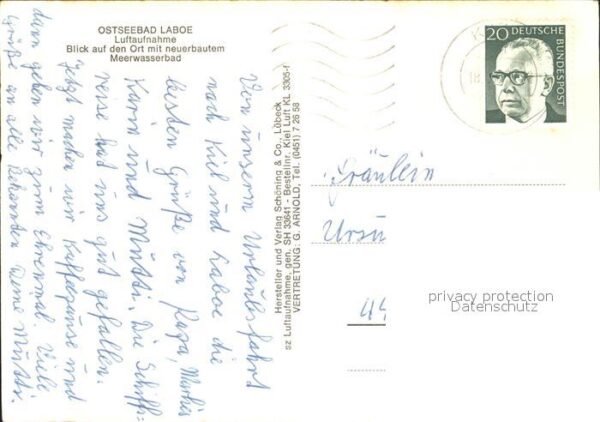 OSTSEEBAD LABOE
Luftaufnahme
Blick auf den Ort mit neuerbautem
Meerwasserbad
Von unserm Urlaubsfahrt
nach Kiel und Laboe die
besten Grüße von Papa,
Karin und Mutti. Die Schiffs=
reise hat uns gut gefallen.
Jetzt machen wir Kaffeepause und
dann gehen wir zum Ehrenmal. Viele
Grüße an alle Bekannten Deine Mutti.
Hersteller und Verlag Schöning & Co., Lübeck
sz Luftaufnahme, gen. SH 33641 - Bestellnr. Kiel Luft KL 3305-f
VERTRETUNG: G. ARNOLD, Tel. (0451) 7 26 58
20 DEUTSCHE
BUNDESPOST
Fräulein
Ursu
44
privacy protection
Datenschutz